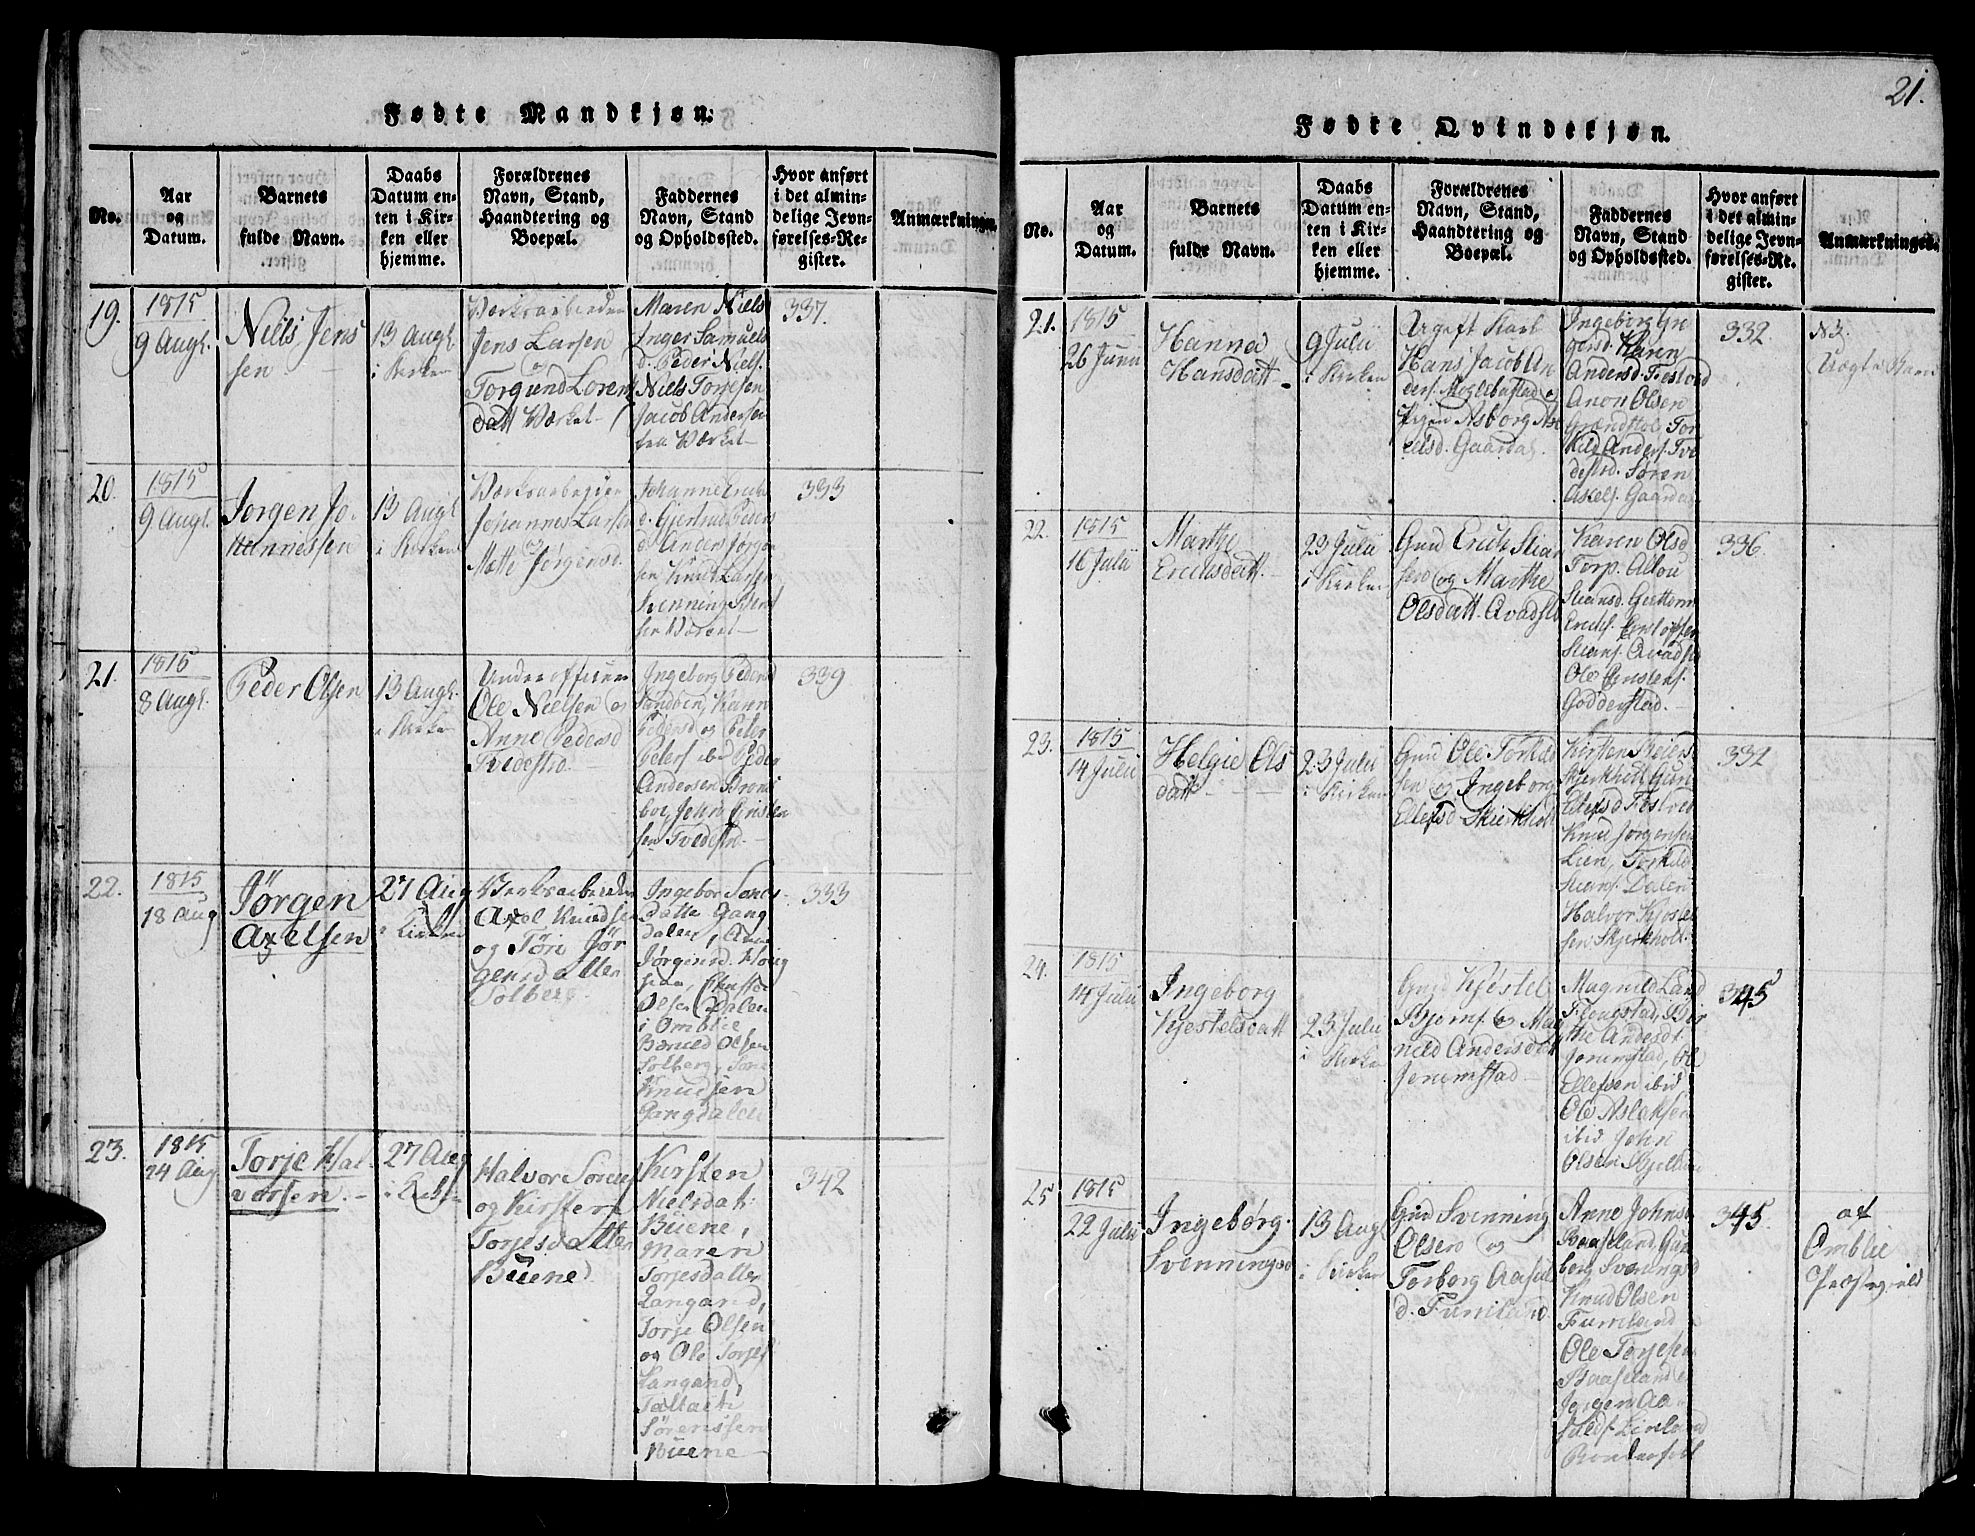 Fødte Mandkjøn.
No.
Aar
og
Datum.
Barnets
fulde Navn.
Daabs
Datum en-
ten i Kir-
ken eller
hjemme.
Forældrenes
Navn, Stand,
Haandtering og
Boepæl.
Faddernes
Navn, Stand
og Opholdssted.
Hvor anført
i det almin-
delige Jevn-
førelses-Re-
gister.
Anmærkninger.
19.
1815
9 Augt.
Niels Jens
sen
13 Augt
i Kirken
Værksarbeider
Jens Larsen
og
Torgund Lorents
datt Værket
Maren Niels
Inger Samuels
d. Peder Niels.
Niels Torjesen
Jacob Andersen
fra Værket
337.
20.
1815
9 Augt.
Jørgen Jo
hannessen
13 Augt
i Kirken
Værksarbeider
Johannes Larsen
og
Mette Jørgensd.
Johanne
d. Gjertrud Peders
d. Anders Jørgen
sen Knud Larsen
Henning
sen Værket
333
21.
1815
8 Augt.
Peder Olsen
13 Augt.
i Kirken
Underofficer
Ole Nielsen og
Anne Pedersd
Tvedestrd.
Ingeborg Pedersd
Sandøen, Karen
Pedersd og Peter
Peters. ibid Peder
Andersen
boe, John Christen
sen Tvedestrd.
339
22.
1815
18 Aug
Jørgen
Axelsen
27 Aug
i Kirken
Værksarbeider
Axel Knudsen
og Töri Jör
gensdatter
Solberg.
Ingebor Sørens
datter Gang
dalen, Ane
Jørgensd.
Olsen Dalen
i Omblie
Olsen
Solberg, Søren
Knudsen
Gangdalen
333
23.
1815
24 Aug
Torje Hal
vorsen.
27 Aug
i Kirken
Halvor Sørens
og Kirsten
Torjesdatter
Buene
Kirsten
Nielsdat.
Buene,
Maren
Torjesdatter
Langand,
Torje Olsen
og Ole Torjes
Langand,
Tallach
Sørenssen
Buene
342
21.
Fødte Qvindekjøn.
No.
Aar
og
Datum.
Barnets
fulde Navn.
Daabs
Datum en-
ten i Kir-
ken eller
hjemme.
Forældrenes
Navn, Stand,
Haandtering og
Boepæl.
Faddernes
Navn, Stand
og Opholdssted.
Hvor anført
i det almin-
delige Jevn-
førelses-Re-
gister.
Anmærkninger.
21.
1815
26 Juni
Hanna
Hansdatt.
9 Julii
i Kirken
Ugift Karl
Hans Jacob An
ders.
Pigen Asborg As
lelsd. Gaardal.
Ingeborg
Karen
Andersd. Fostved
Anon Olsen
Tor
kild Anders. Tve
destrd. Søren
Gaardal
332
NB.
Uægte Barn
22.
1815
16 Julii
Marthe
Erichsdatt.
23 Julii
i Kirken
Gmd Erich Stian
sen og Marthe
Olsdatt.
Karen Olsd
Torp.
Stiansd.
Erichs.
Stians.
Ole
Godderstad.
336.
23.
1815
14 Julii
Helgie Ols
datt
23 Julii
i Kirken
Gmd Ole Torkild
sen og Ingeborg
Ellefsd Skierkholt
Kirsten
Skjerkholt Gun
Ellefsd Fostved
Knud Jørgensen
Lien, Torkild
Stians. Dalen
Halvor Kjostel
sen Skjerkholt
332
24.
1815
14 Julii
Ingeborg
Kjestelsdatt
23 Julii
i Kirken
Gmd Kjøstel
Bjorns. og Mag
nild Andersdatt
Jorumstad
Magnild
Andersdt.
Jorumstad, Ole
Ellefsen ibid
Ole Aslaksen
ibid John
Olsen
345
25
1815
22 Julii
Ingebørg
Svenningsd
13 Augt
i Kirken
Gmd Svenning
Olsen og
Torborg
d. Furreland
Anne Johnsd
Baaseland, Gun
borg Svenningsd
Knud Olsen
Furreland
Ole Torjesen
Baaseland
Jørgen Aa
345.
af
Omblie
Præstegield